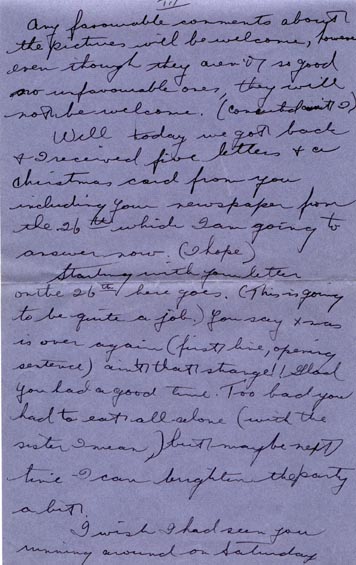 III
Any favourable comments about
the pictures will be welcomed, however
even though they aren't so good
no unfavourable ones, they will
not be welcome. (conceited ain't I)
Well today we got back
& I received five letters & a
Christmas card from you
including your newspaper from
the 26th which I am going to
answer now. (I hope)
Starting with your letter
on the 26th here goes. (This is going
to be quite a job.) You say xmas
is over again (first line, opening
sentence) ain't that strange!! Glad
you had a good time. Too bad you
had to eat all alone (with the
sister I mean,) but maybe next
time I can brighten the party
a bit.
I wish I had seen you
running around on Saturday